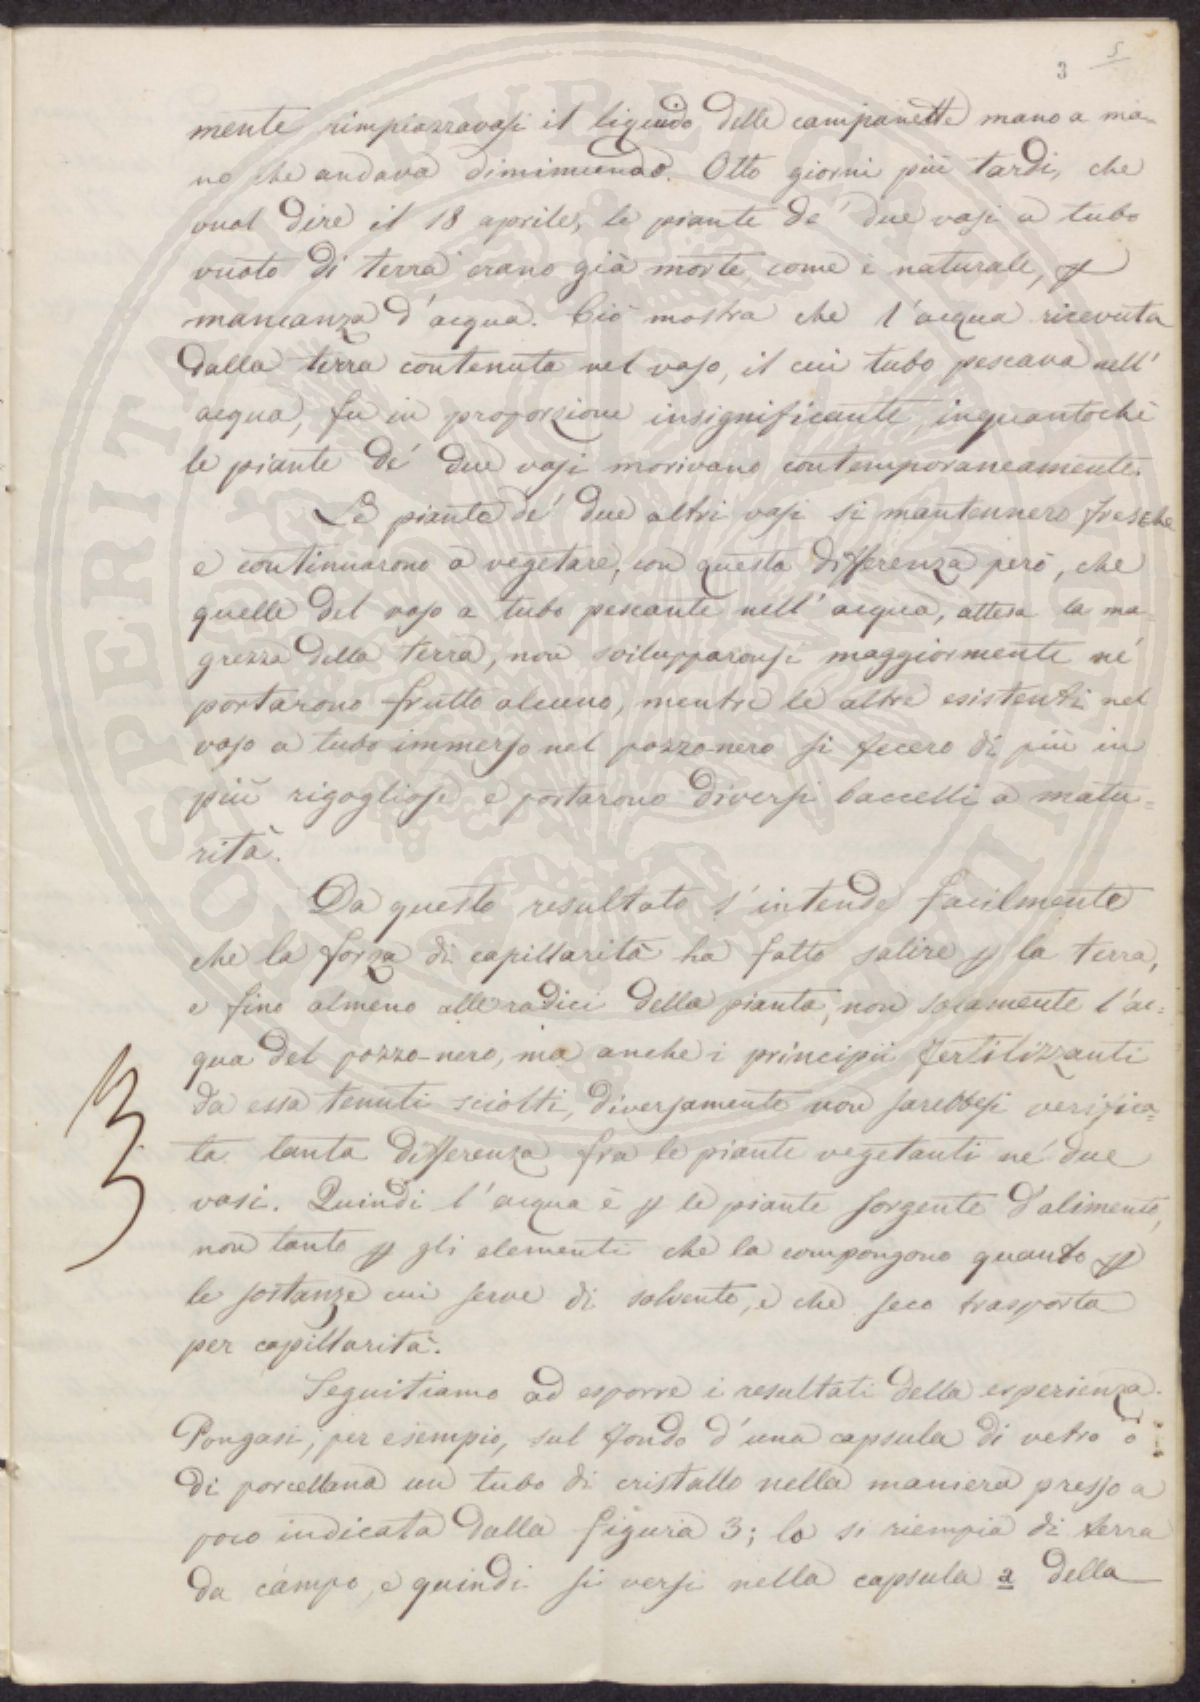 3 5
mente rimpiazzavasi il liquido delle campanette mano a ma-
no che andava diminuendo. Otto giorni più tardi, che
vual dire il 18 aprile, le piante de' due vasi a tubo
vuoto di terra erano già morte, come è naturale, p
mancanza d'acqua. Ciò mostra che l'acqua ricevuta
dalla terra contenuta nel vaso, il cui tubo pescava nell'
acqua, fu in proporzione insignificante, inquantochè
le piante de' due vasi morivano contemporaneamente.
Le piante de' due altri vasi si mantennero fresche
e continuarono a vegetare, con questa differenza però, che
quelle del vaso a tubo pescante nell'acqua, attesa la ma-
grezza della terra, non svilupparonsi maggiormente nè
portarono frutto alcuno, mentre le altre esistenti nel
vaso a tubo immerso nel pozzo-nero si fecero di più in
più rigogliose e portarono diversi baccelli a matu-
rità.
Da questo resultato s'intende facilmente
che la forza di capillarità ha fatto salire p la terra,
e fino almeno alle radici della pianta, non solamente l'ac-
qua del pozzo-nero, ma anche i principii fertilizzanti
da essa tenuti sciolti, diversamente non sarebbesi verifica-
ta tanta differenza fra le piante vegetanti ne' due
vasi. Quindi l'acqua è p le piante sorgente d'alimento,
non tanto p gli elementi che la compongono quanto p
le sostanze cui serve di solvente, e che seco trasporta
per capillarità.
Seguitiamo ad esporre i resultati della esperienza.
Pongasi, per esempio, sul fondo d'una capsula di vetro o
di porcellana un tubo di cristallo nella maniera presso a
poco indicata dalla figura 3; lo si riempia di terra
da campo, e quindi si versi nella capsula a della
PROSPERITATI PVBLICAE